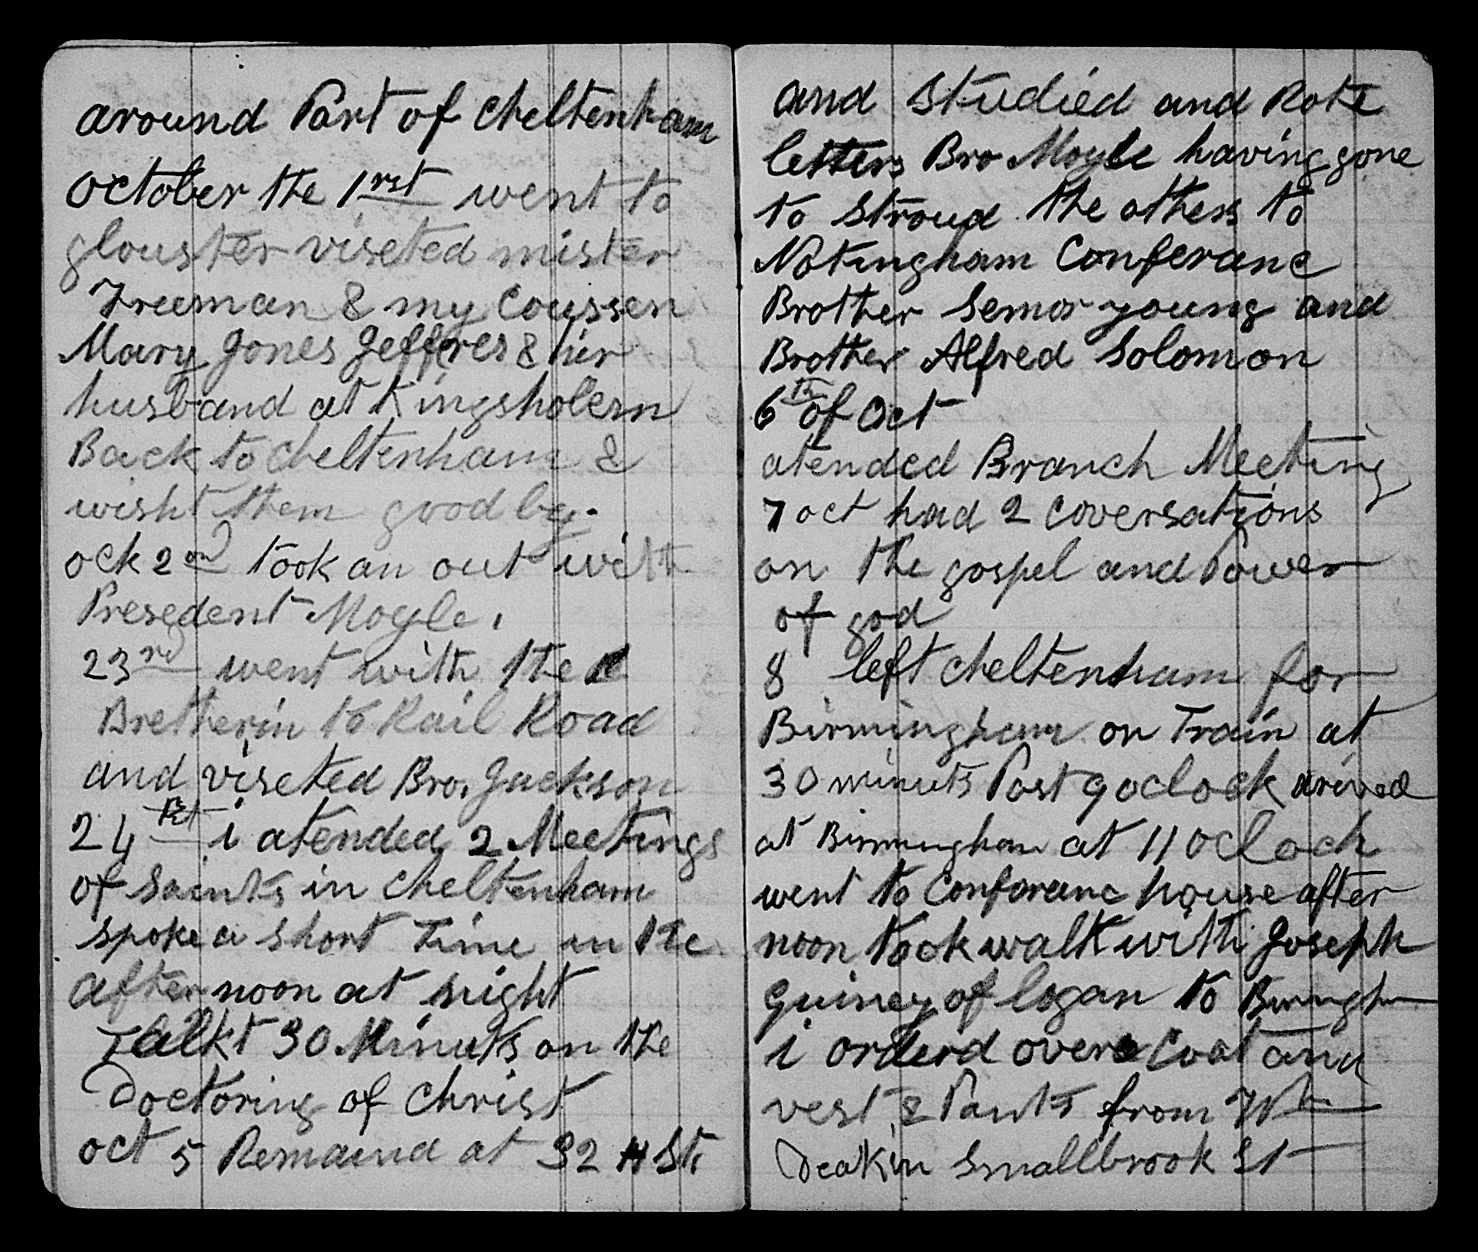 around Part of Cheltenham
October the 1rst went to
glouster viseted mister
Freeman & my Coussen
Mary Jones Jeffres & hir
husband at Kingsholem
Back to Cheltenham &
wisht them good by.
ock 2nd took an out with
Presedent Moyle.
23rd went with the
Bretherin to Rail Road
and viseted Bro. Jackson
24 i atended 2 Meetings
of Saints in Cheltenham
spoke a short Time in the
after noon at night
Talkt 30 Minuts on the
Doctoring of Christ
oct 5 Remaind at 32 H St.
and Studied and Rote
letters Bro Moyle having gone
to Stroud the others to
Notingham Conferanc
Brother Semor young and
Brother Alfred Solomon
6th of Oct
atended Branch Meeting
7 oct had 2 coversations
on the gospel and Power
of god
8 left Cheltenham for
Birmingham on Train at
30 minuts Past 9 oclock arived
at Birmingham at 11 oclock
went to Conforanc house after
noon took walk with Joseph
Quiney of logan to Birmingham
i orderd over Coat and
vest & Pants from Wm
Deakin Smallbrook St